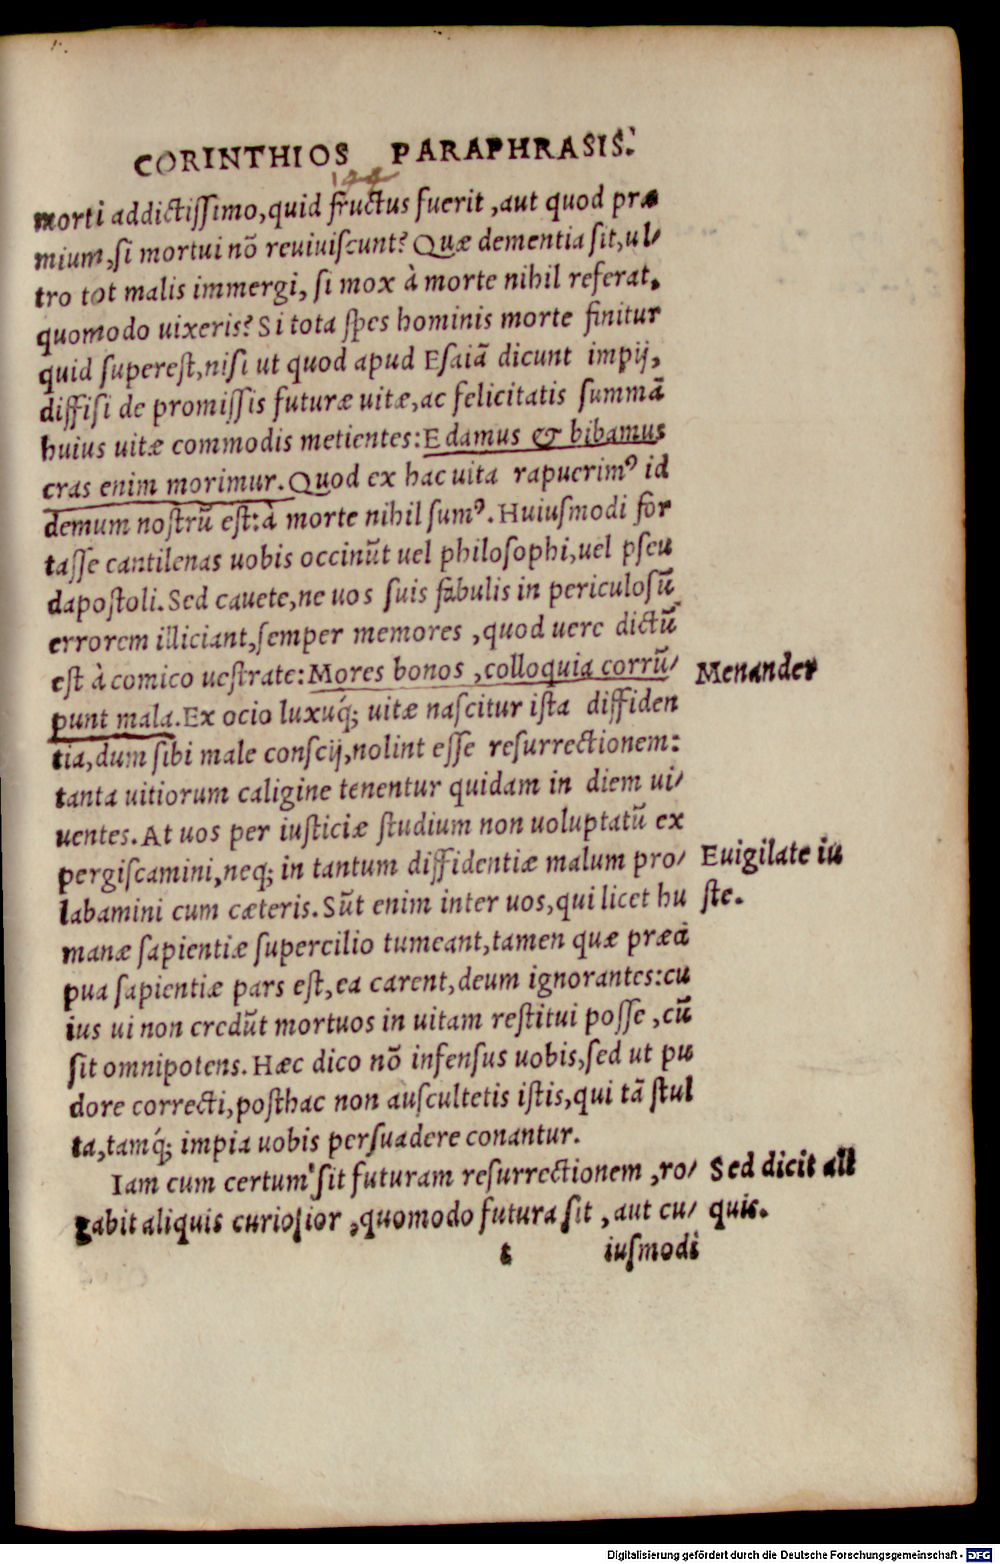 CORINTHIOS PARAPHRASIS.
144
morti addictissimo, quid fructus fuerit, aut quod præ
mium, si mortui nõ reuiuiscunt? Quæ dementia sit, ul/
tro tot malis immergi, si mox à morte nihil referat,
quomodo uixeris? Si tota spes hominis morte finitur
quid superest, nisi ut quod apud Esaiã dicunt impij,
diffisi de promissis futuræ uitæ, ac felicitatis summã
huius uitæ commodis metientes: Edamus & bibamus
cras enim morimur. Quod ex hac uita rapuerimꝰ id
demum nostrũ est: à morte nihil sumꝰ. Huiusmodi for
tasse cantilenas uobis occinũt uel philosophi, uel pseu
dapostoli. Sed cauete, ne uos suis fabulis in periculosũ
errorem illiciant, semper memores, quod uere dictũ
est à comico uestrate: Mores bonos, colloquia corrũ/
Menander
punt mala. Ex ocio luxuq́; uitæ nascitur ista diffiden
tia, dum sibi male conscij, nolint esse resurrectionem:
tanta uitiorum caligine tenentur quidam in diem ui/
uentes. At uos per iusticiæ studium non uoluptatũ ex
pergiscamini, neq; in tantum diffidentiæ malum pro/
Euigilate iu
labamini cum cæteris. Sũt enim inter uos, qui licet hu
ste.
manæ sapientiæ supercilio tumeant, tamen quæ præci
pua sapientiæ pars est, ea carent, deum ignorantes: cu
ius ui non credũt mortuos in uitam restitui posse, cũ
sit omnipotens. Hæc dico nõ infensus uobis, sed ut pu
dore correcti, posthac non auscultetis istis, qui tã stul
ta, tamq́; impia uobis persuadere conantur.
Iam cum certum sit futuram resurrectionem, ro/
Sed dicit ali
gabit aliquis curiosior, quomodo futura sit, aut cu/
quis.
t iusmodi
Digitalisierung gefördert durch die Deutsche Forschungsgemeinschaft - DFG